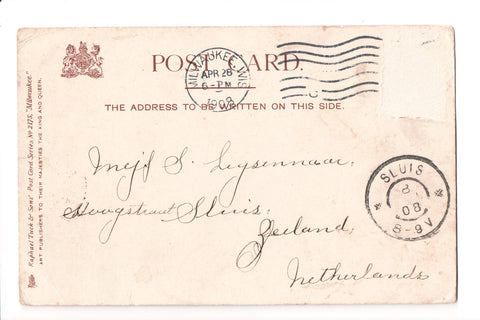 POST CARD.
MILWAUKEE, WIS
APR 28
6-PM
1908
THE ADDRESS TO BE WRITTEN ON THIS SIDE.
Raphael Tuck & Sons' Post Card Series Nº 2175, "Milwaukee."
ART PUBLISHERS TO THEIR MAJESTIES THE KING AND QUEEN.
Mejf S. Luysenaar.
Hoogstraat Sluis.
Zeeland.
Netherlands
SLUIS
8
08
8-9V